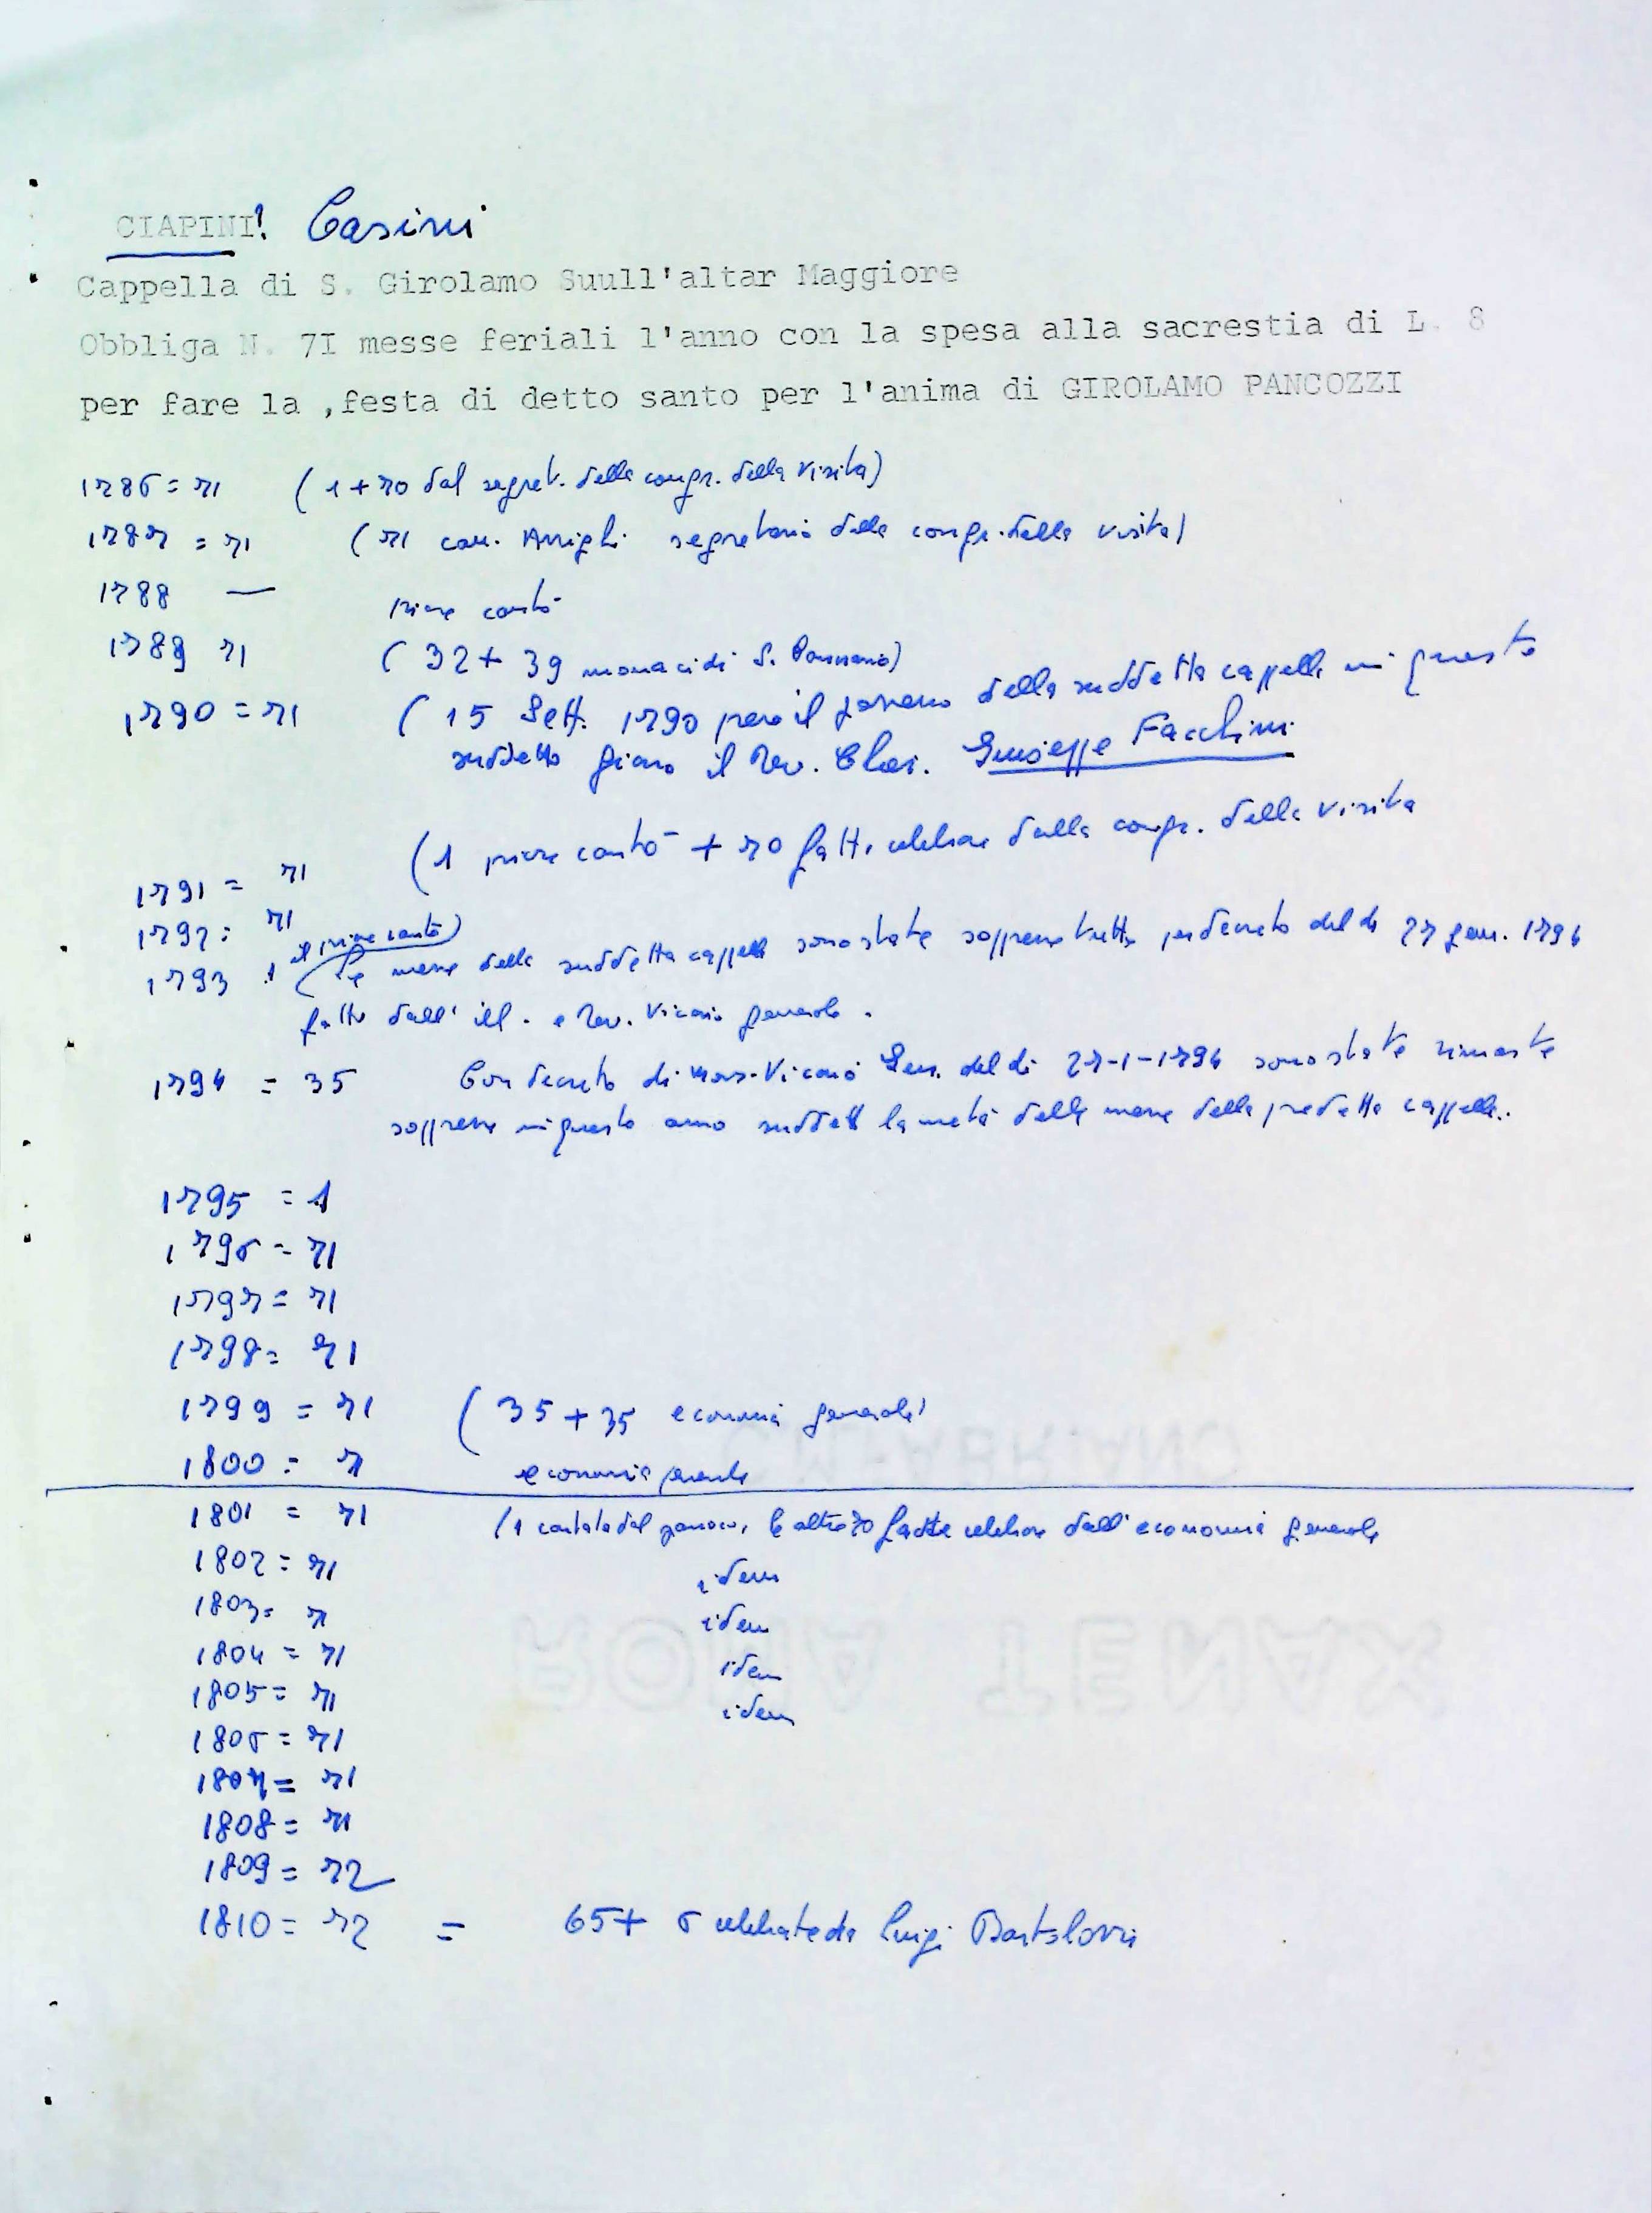 CIAPINI! Casini
Cappella di S. Girolamo Suull'altar Maggiore
Obbliga N. 7I messe feriali l'anno con la spesa alla sacrestia di L. 8
per fare la ,festa di detto santo per l'anima di GIROLAMO PANCOZZI
1786 = 71 (1 + 70 dal segret. della congr. della visita)
1787 = 71 (71 can. Arrighi segretario della congr. della visita)
1788 — priore cantò
1789 71 (32 + 39 monaci di S.
1790 = 71 (15 Sett. 1790 prese il possesso della suddetta cappella in questo
suddetto giorno il Rev. Cher. Giuseppe Facchini
1791 = 71 (1 priore cantò + 70 fatte celebrare dalla congr. della visita
1792 = 71
il priore cantò)
1793 1 (le messe della suddetta cappella sono state soppresse tutte per decreto del dì 27 genn. 1794
fatto dall' ill. e Rev. Vicario generale.
1794 = 35 Con decreto di Mons. Vicario Gen. del dì 27-1-1794 sono state rimaste
soppresse in questo anno suddett la metà delle messe della predetta cappella.
1795 = 1
1796 = 71
1797 = 71
1798 = 71
1799 = 71 (35 + 35 economia generale)
1800 = 71 economia generale
1801 = 71 (1 cantata dal parroco, le altre 70 fatte celebrare dall'economia generale
1802 = 71 idem
1803 = 71 idem
1804 = 71 idem
1805 = 71 idem
1806 = 71
1807 = 71
1808 = 71
1809 = 72
1810 = 72 = 65 + 6 celebrate da Luigi Bartolozzi
CIL-ABRIANO
ROMA TENAX